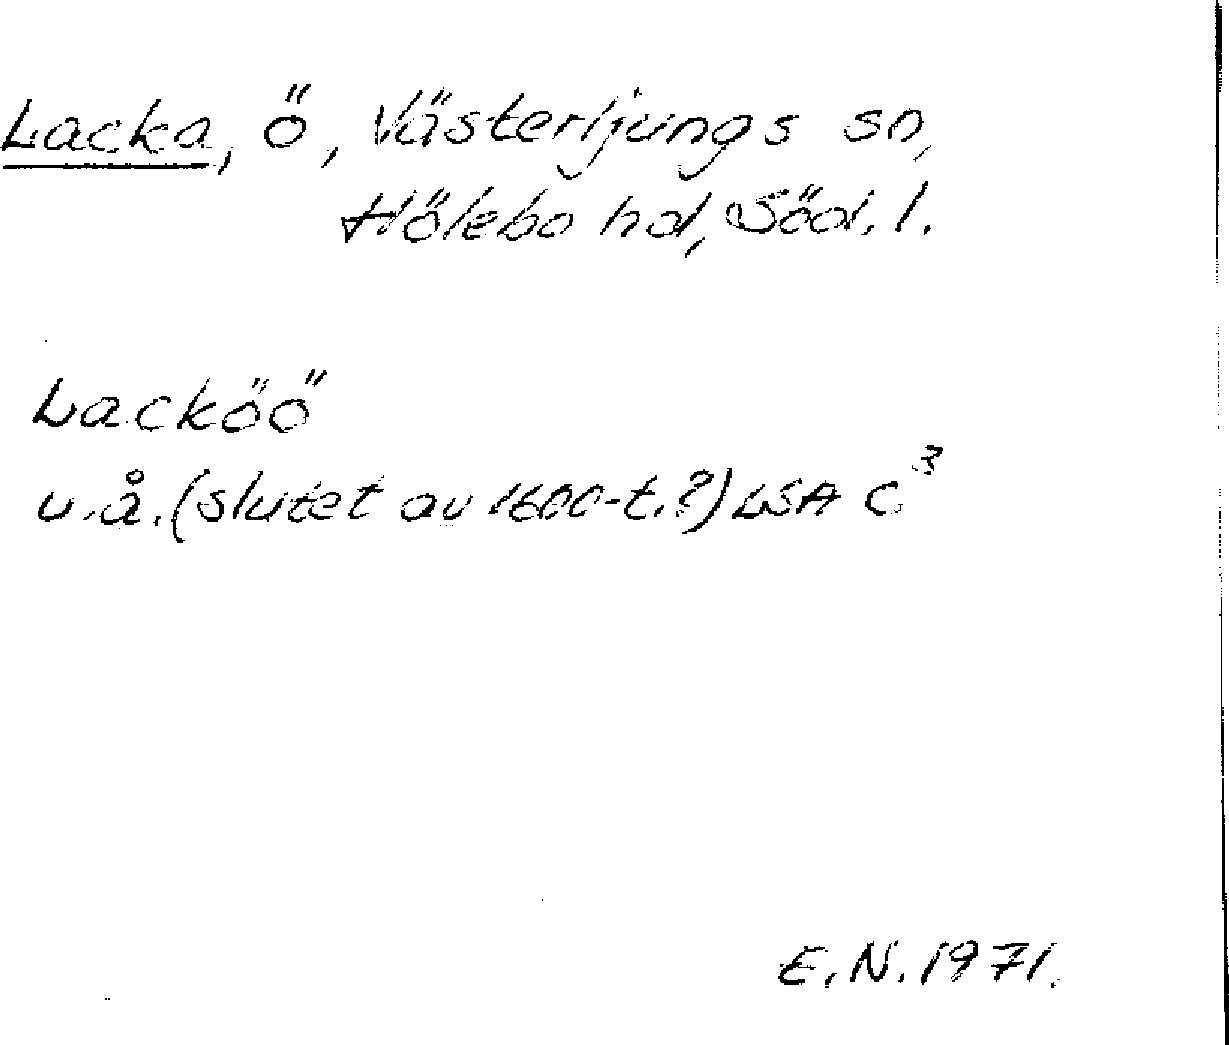 Lacka, ö, Västerljungs sn,
Hölebo hd, Söd. l.
Lacköö
u.å. (slutet av 1600-t.?) LSA C³
E.N. 1971.